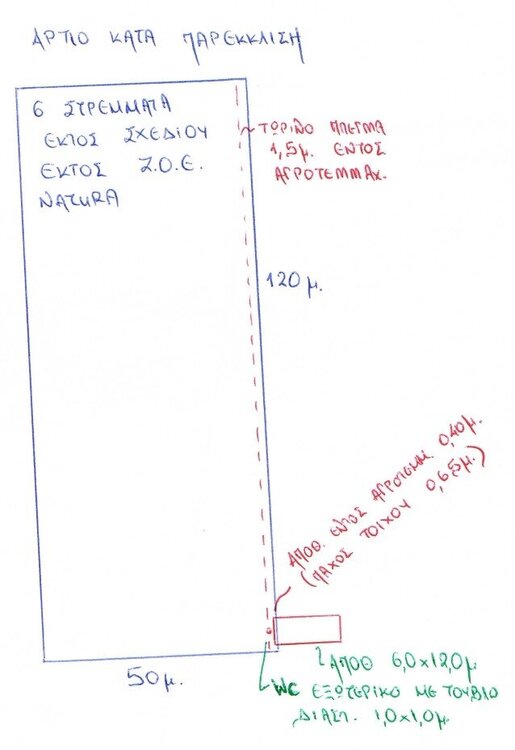 ΑΡΤΙΟ ΚΑΤΑ ΠΑΡΕΚΚΛΙΣΗ
6 ΣΤΡΕΜΜΑΤΑ
ΕΚΤΟΣ ΣΧΕΔΙΟΥ
ΕΚΤΟΣ Ζ.Ο.Ε.
NATURA
ΤΩΡΙΝΟ ΠΛΕΓΜΑ
1,5μ. ΕΝΤΟΣ
ΑΓΡΟΤΕΜΜΑΧ.
120 μ.
ΑΠΟΘ. ΕΝΤΟΣ ΑΓΡΟΤΕΜΜ. 0,40μ.
(ΠΑΧΟΣ ΤΟΙΧΟΥ 0,65μ.)
50μ.
ΑΠΟΘ 6,0x12,0μ
WC ΕΞΩΤΕΡΙΚΟ ΜΕ ΤΟΥΒΛΟ
ΔΙΑΣΤ. 1,0x1,0μ.